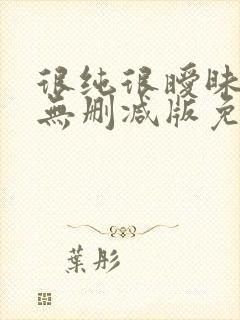 很纯很暧昧
無删减版免
葉彤